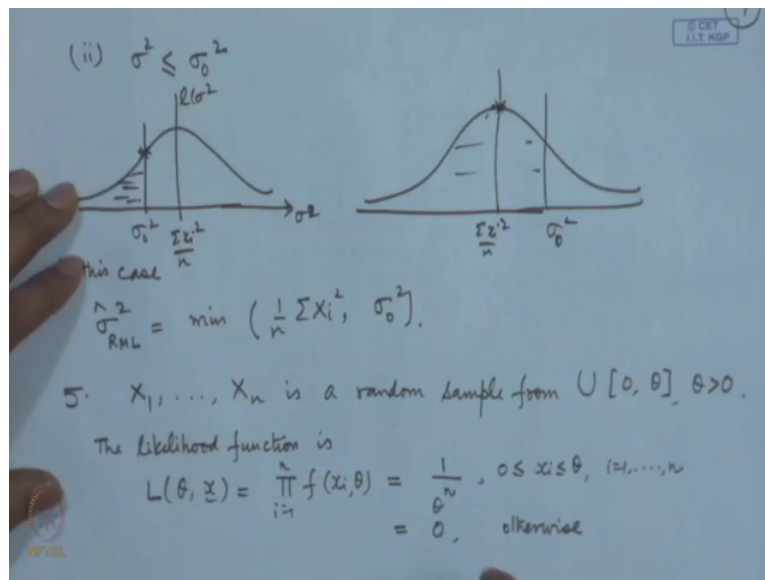 1
© CET
I.I.T. KGP
(ii) σ² ≤ σ₀²
l(σ²
σ₀² Σxi²/n σ²
Σxi²/n σ₀²
this case
σ̂²_RML = min (1/n ΣXi², σ₀²).
5. X₁, ..., Xₙ is a random sample from U [0, θ], θ>0.
The likelihood function is
L(θ, x) = ∏ᵢ₌₁ⁿ f(xi, θ) = 1/θⁿ , 0 ≤ xi ≤ θ, i=1,...,n
= 0, otherwise
NPTEL